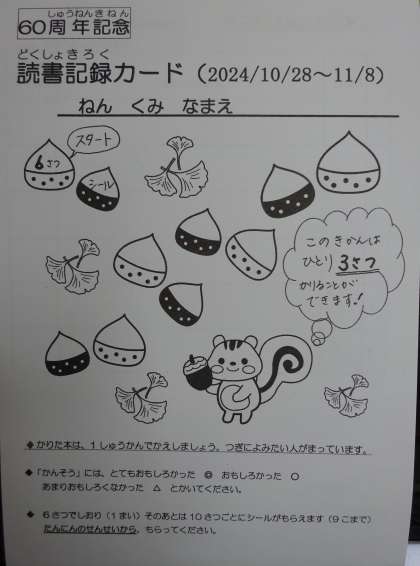 しゅうねんきねん
60周年記念
どくしょきろく
読書記録カード（2024/10/28～11/8）
ねん くみ なまえ
スタート
6さつ
シール
このきかんは
ひとり 3さつ
かりることが
できます！
◆かりた本は、1しゅうかんでかえしましょう。つぎによみたい人がまっています。
◆「かんそう」には、とてもおもしろかった ◎ おもしろかった ○
あまりおもしろくなかった △ とかいてください。
◆ 6さつでしおり（1まい）そのあとは10さつごとにシールがもらえます（9こまで）
たんにんのせんせいから、もらってください。